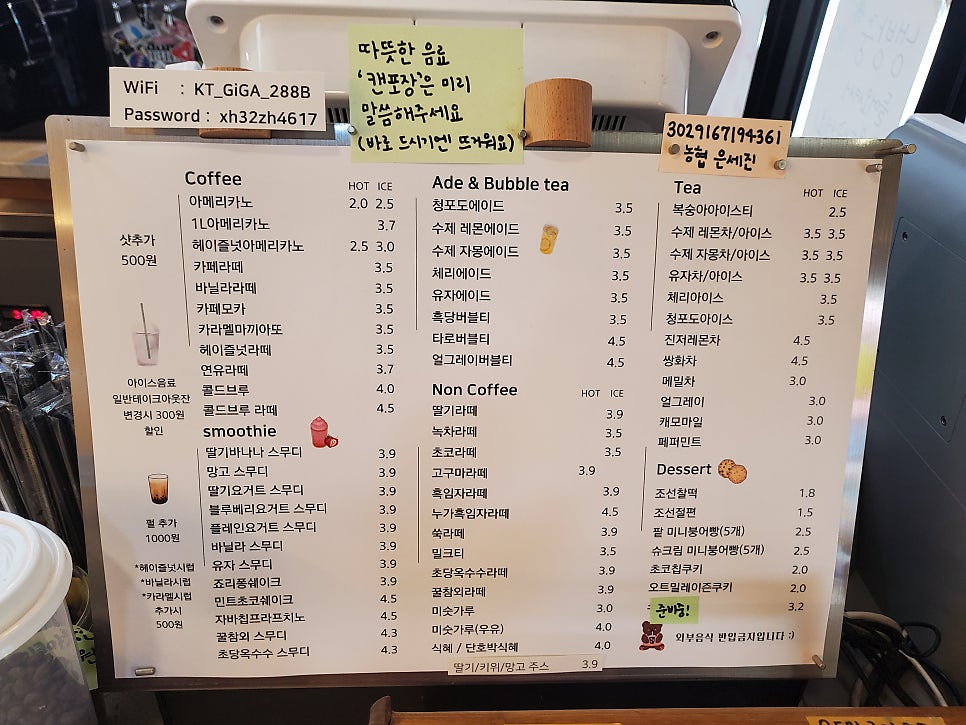 WiFi : KT_GiGA_288B
Password : xh32zh4617
따뜻한 음료
'캔포장'은 미리
말씀해주세요
(바로 드시기엔 뜨거워요)
3029167194361
농협 은세진
샷추가
500원
아이스음료
일반테이크아웃잔
변경시 300원
할인
펄 추가
1000원
*헤이즐넛시럽
*바닐라시럽
*카라멜시럽
추가시
500원
Coffee HOT ICE
아메리카노 2.0 2.5
1L아메리카노 3.7
헤이즐넛아메리카노 2.5 3.0
카페라떼 3.5
바닐라라떼 3.5
카페모카 3.5
카라멜마끼아또 3.5
헤이즐넛라떼 3.5
연유라떼 3.7
콜드브루 4.0
콜드브루 라떼 4.5
smoothie
딸기바나나 스무디 3.9
망고 스무디 3.9
딸기요거트 스무디 3.9
블루베리요거트 스무디 3.9
플레인요거트 스무디 3.9
바닐라 스무디 3.9
유자 스무디 3.9
죠리퐁쉐이크 3.9
민트초코쉐이크 4.5
자바칩프라프치노 4.5
꿀참외 스무디 4.3
초당옥수수 스무디 4.3
Ade & Bubble tea
청포도에이드 3.5
수제 레몬에이드 3.5
수제 자몽에이드 3.5
체리에이드 3.5
유자에이드 3.5
흑당버블티 3.5
타로버블티 4.5
얼그레이버블티 4.5
Non Coffee HOT ICE
딸기라떼 3.9
녹차라떼 3.5
초코라떼 3.5
고구마라떼 3.9
흑임자라떼 3.9
누가흑임자라떼 4.5
쑥라떼 3.9
밀크티 3.5
초당옥수수라떼 3.9
꿀참외라떼 3.9
미숫가루 3.0
미숫가루(우유) 4.0
식혜 / 단호박식혜 4.0
딸기/키위/망고 주스 3.9
Tea HOT ICE
복숭아아이스티 2.5
수제 레몬차/아이스 3.5 3.5
수제 자몽차/아이스 3.5 3.5
유자차/아이스 3.5 3.5
체리아이스 3.5
청포도아이스 3.5
진저레몬차 4.5
쌍화차 4.5
메밀차 3.0
얼그레이 3.0
캐모마일 3.0
페퍼민트 3.0
Dessert
조선찰떡 1.8
조선절편 1.5
팥 미니붕어빵(5개) 2.5
슈크림 미니붕어빵(5개) 2.5
초코칩쿠키 2.0
오트밀레이즌쿠키 2.0
준비중! 3.2
외부음식 반입금지입니다 :)